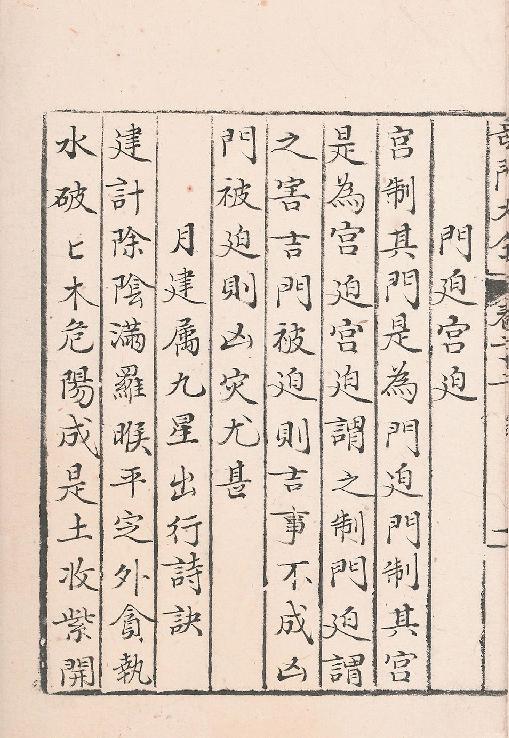 門迫宮迫
宮制其門是為門迫門制其宮
是為宮迫宮迫謂之制門迫謂
之害吉門被迫則吉事不成凶
門被迫則凶灾尤甚
月建属九星出行詩訣
建計除陰滿羅㬋平定外貪執
水破匕木危陽成是土收紫開